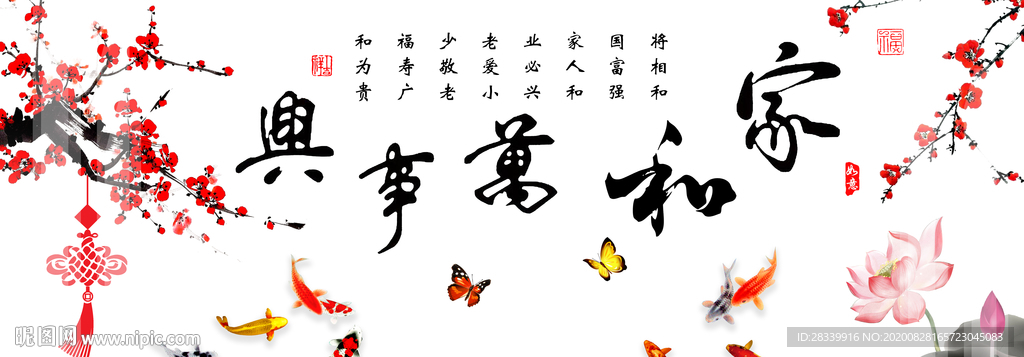 将相和
国富强
家人和
业必兴
老爱小
少敬老
福寿广
和为贵
家和萬事興
福
如意
吉祥
昵图网 www.nipic.com
ID:28339916 NO:20200828165723045083